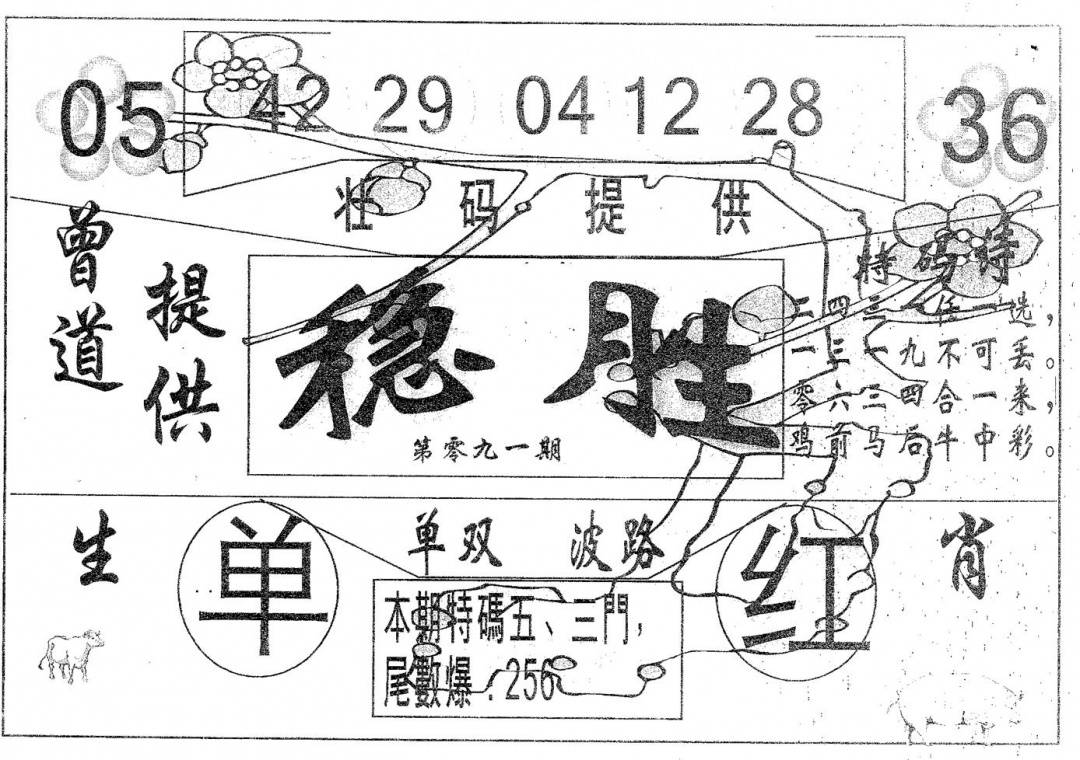 05 42 29 04 12 28 36
壮码提供
曾道
提供
稳胜
第零九一期
特码诗
三四三一任一选，
一三一九不可丢。
零六三四合一来，
鸡前马后牛中彩。
生 肖
单 单双 波路 红
本期特碼五、三門，
尾數爆：256